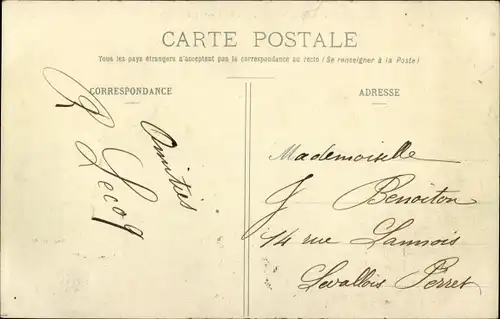 CARTE POSTALE
Tous les pays étrangers n'acceptent pas la correspondance au recto (Se renseigner à la Poste)
CORRESPONDANCE
Amitiés
R Lecoq
ADRESSE
Mademoiselle
J Benoiton
14 rue Lannois
Levallois Perret